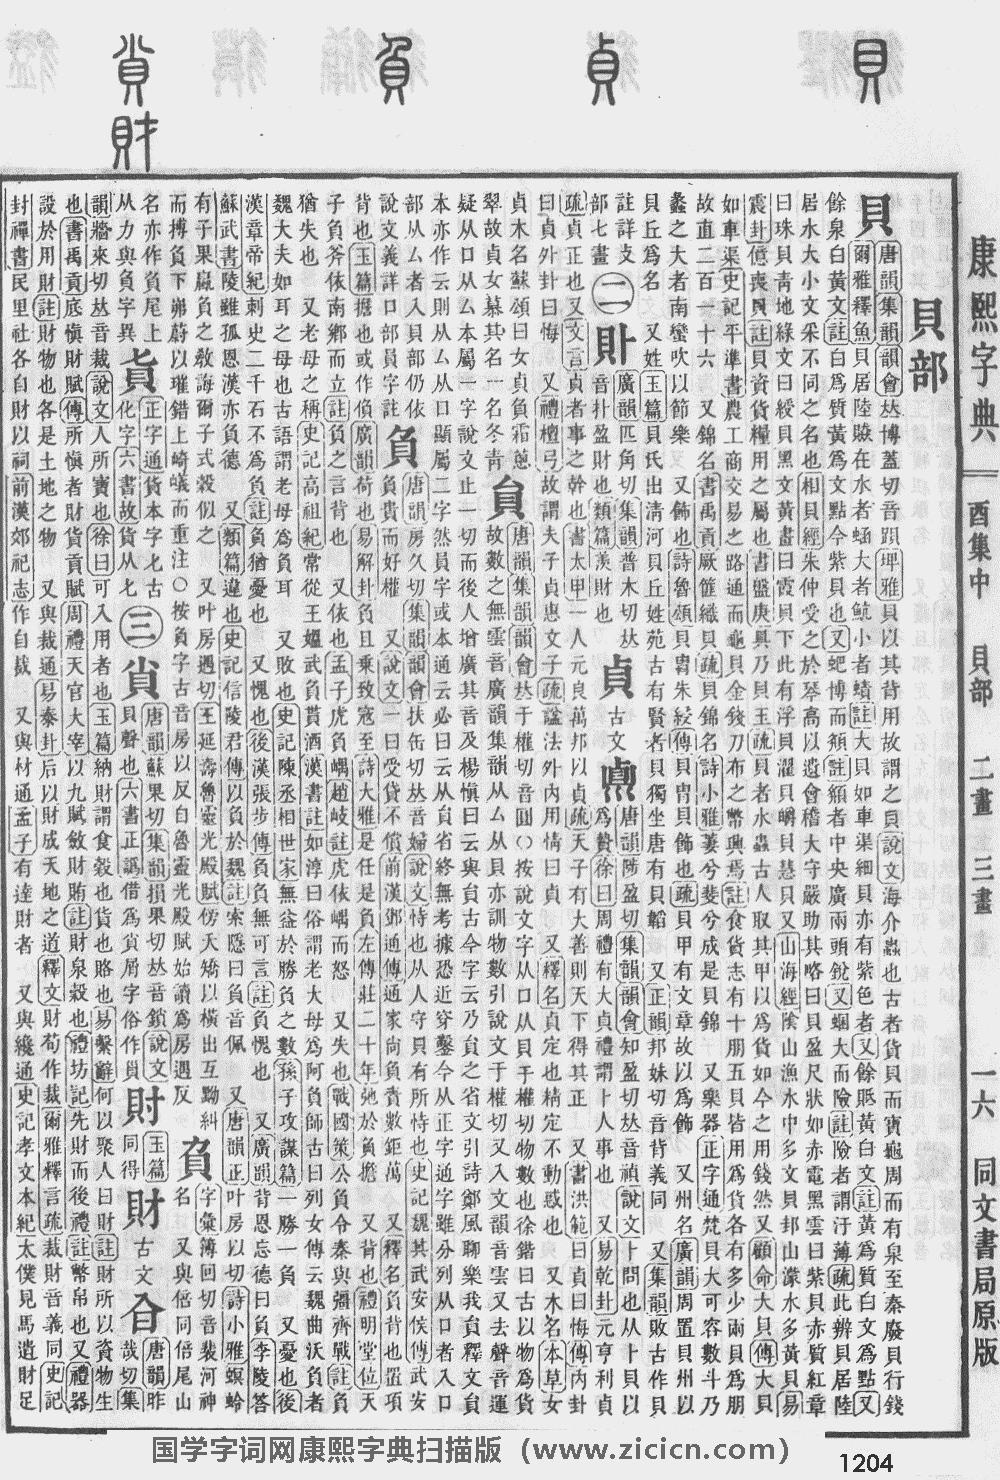 貝
貞
負
財
康熙字典 酉集中 貝部 二畫 三畫 一六 同文書局原版
貝部
貝 唐韻集韻韻會𠀤博蓋切音䟺埤雅貝以其背用故謂之貝說文海介蟲也古者貨貝而寶龜周而有泉至秦廢貝行錢
爾雅釋魚貝居陸贆在水者蜬大者魧小者𧐐註大貝如車渠細貝亦有紫色者又餘貾黃白文註黃爲質白文爲點又
餘泉白黃文註白爲質黃爲文點今紫貝也又蚆博而頯註頯者中央廣兩頭銳又蜠大而險註險者謂汙薄疏此辨貝居陸
居水大小文采不同之名也相貝經朱仲受之於琴高以遺會稽大守嚴助其略曰貝盈尺狀如赤電黑雲曰紫貝赤質紅章
曰珠貝靑地綠文曰綬貝黑文黃畫曰霞貝下此有浮貝濯貝皭貝慧貝又山海經隂山漁水中多文貝邽山濛水多黃貝易
震卦億喪貝註貝資貨糧用之屬也書盤庚具乃貝玉疏貝者水蟲古人取其甲以爲貨如今之用錢然又顧命大貝傳大貝
如車渠史記平準書農工商交易之路通而龜貝金錢刀布之幣興焉註食貨志有十朋五貝皆用爲貨各有多少兩貝爲朋
故直二百一十六 又錦名書禹貢厥篚織貝疏貝錦名詩小雅萋兮斐兮成是貝錦 又樂器正字通梵貝大可容數斗乃
蠡之大者南蠻吹以節樂 又飾也詩魯頌貝冑朱綅傳貝冑貝飾也疏貝甲有文章故以爲飾 又州名廣韻周置貝州以
貝丘爲名 又姓玉篇貝氏出淸河貝丘姓苑古有賢者貝獨坐唐有貝韜 又正韻邦妹切音背義同 又集韻敗古作貝
註詳攴部七畫 二 𧴤 廣韻匹角切集韻普木切𠀤音扑盈財也類篇羨財也 貞 古文 𠁩 唐韻陟盈切集韻韻會知盈切𠀤音禎說文卜問也从卜貝以爲贄徐曰周禮有大貞禮謂卜人事也 又易乾卦元亨利貞
疏貞正也又文言貞者事之幹也書太甲一人元良萬邦以貞疏天子有大善則天下得其正 又書洪範曰貞曰悔傳內卦
曰貞外卦曰悔 又禮檀弓故謂夫子貞惠文子疏諡法外內用情曰貞 又釋名貞定也精定不動惑也 又木名本草女
貞木名蘇頌曰女貞負霜蔥翠故貞女慕其名一名冬靑 貟 唐韻集韻韻會𠀤于權切音圓○按說文字从口从貝于權切物數也徐鍇曰古以物爲貨
故數之無雲音廣韻集韻从厶从貝亦訓物數引說文于權切又入文韻音雲又去聲音運
疑从口从厶本屬一字說文止一切而後人增廣其音及楊愼曰云與貟古今字云乃貟之省文引詩鄭風聊樂我貟釋文貟
本亦作云則从厶从口顯屬二字然員字或本通云必曰云从貟省終無考據恐近穿鑿今从正字通字雖分列从口者入口
部从厶者入貝部仍依說文義詳口部員字註 負 唐韻房久切集韻韻會扶缶切𠀤音婦說文恃也从人守貝有所恃也史記魏其武安侯傳武安
負貴而好權 又說文一曰受貸不償前漢鄧通傳通家尚負責數鉅萬 又釋名負背也置項
背也玉篇擔也或作偩廣韻荷也易解卦負且乘致寇至詩大雅是任是負左傳莊二十年弛於負擔 又背也禮明堂位天
子負斧依南鄕而立註負之言背也 又依也孟子虎負嵎趙岐註虎依嵎而怒 又失也戰國策公負令秦與彊齊戰註負
猶失也 又老母之稱史記高祖紀常從王媼武負貰酒漢書註如淳曰俗謂老大母爲阿負師古曰列女傳云魏曲沃負者
魏大夫如耳之母也古語謂老母爲負耳 又敗也史記陳丞相世家無益於勝負之數孫子攻謀篇一勝一負 又憂也後
漢章帝紀刺史二千石不爲負註負猶憂也 又愧也後漢張步傳負負無可言註負愧也 又廣韻背恩忘德曰負李陵答
蘇武書陵雖孤恩漢亦負德 又類篇違也史記信陵君傳以負於魏註索隱曰負音佩 又唐韻正叶房以切詩小雅螟蛉
有子果蠃負之敎誨爾子式穀似之 又叶房遇切王延壽魯靈光殿賦傍夭矯以橫出互黝糾
而搏負下岪蔚以璀錯上崎嶬而重注○按負字古音房以反自魯靈光殿賦始讀爲房遇反 負 字彙簿回切音裴河神
名 又與偣同倍尾山
名亦作負尾 㫖 正字通貨本字上从力與負字異 化字六書故貨从七 三 貟 唐韻蘇果切集韻損果切𠀤音鎖說文
貝聲也六書正譌借爲貟屑字俗作𧴪 財 玉篇同得 財 古文 㒲 唐韻昨哉切集
韻牆來切𠀤音裁說文人所寶也徐曰可入用者也玉篇納財謂食穀也貨也賂也易繫辭何以聚人曰財註財所以資物生
也書禹貢底愼財賦傳所愼者財貨貢賦周禮天官大宰以九賦斂財賄註財泉穀也禮坊記先財而後禮註幣帛也又禮器
設於用財註財物也各是土地之物 又與裁通易泰卦后以財成天地之道釋文財荀作裁爾雅釋言疏裁財音義同史記
封禪書民里社各自財以祠前漢郊祀志作自裁 又與材通孟子有達財者 又與纔通史記孝文本紀太僕見馬遺財足
国学字词网康熙字典扫描版（www.zicicn.com）
1204